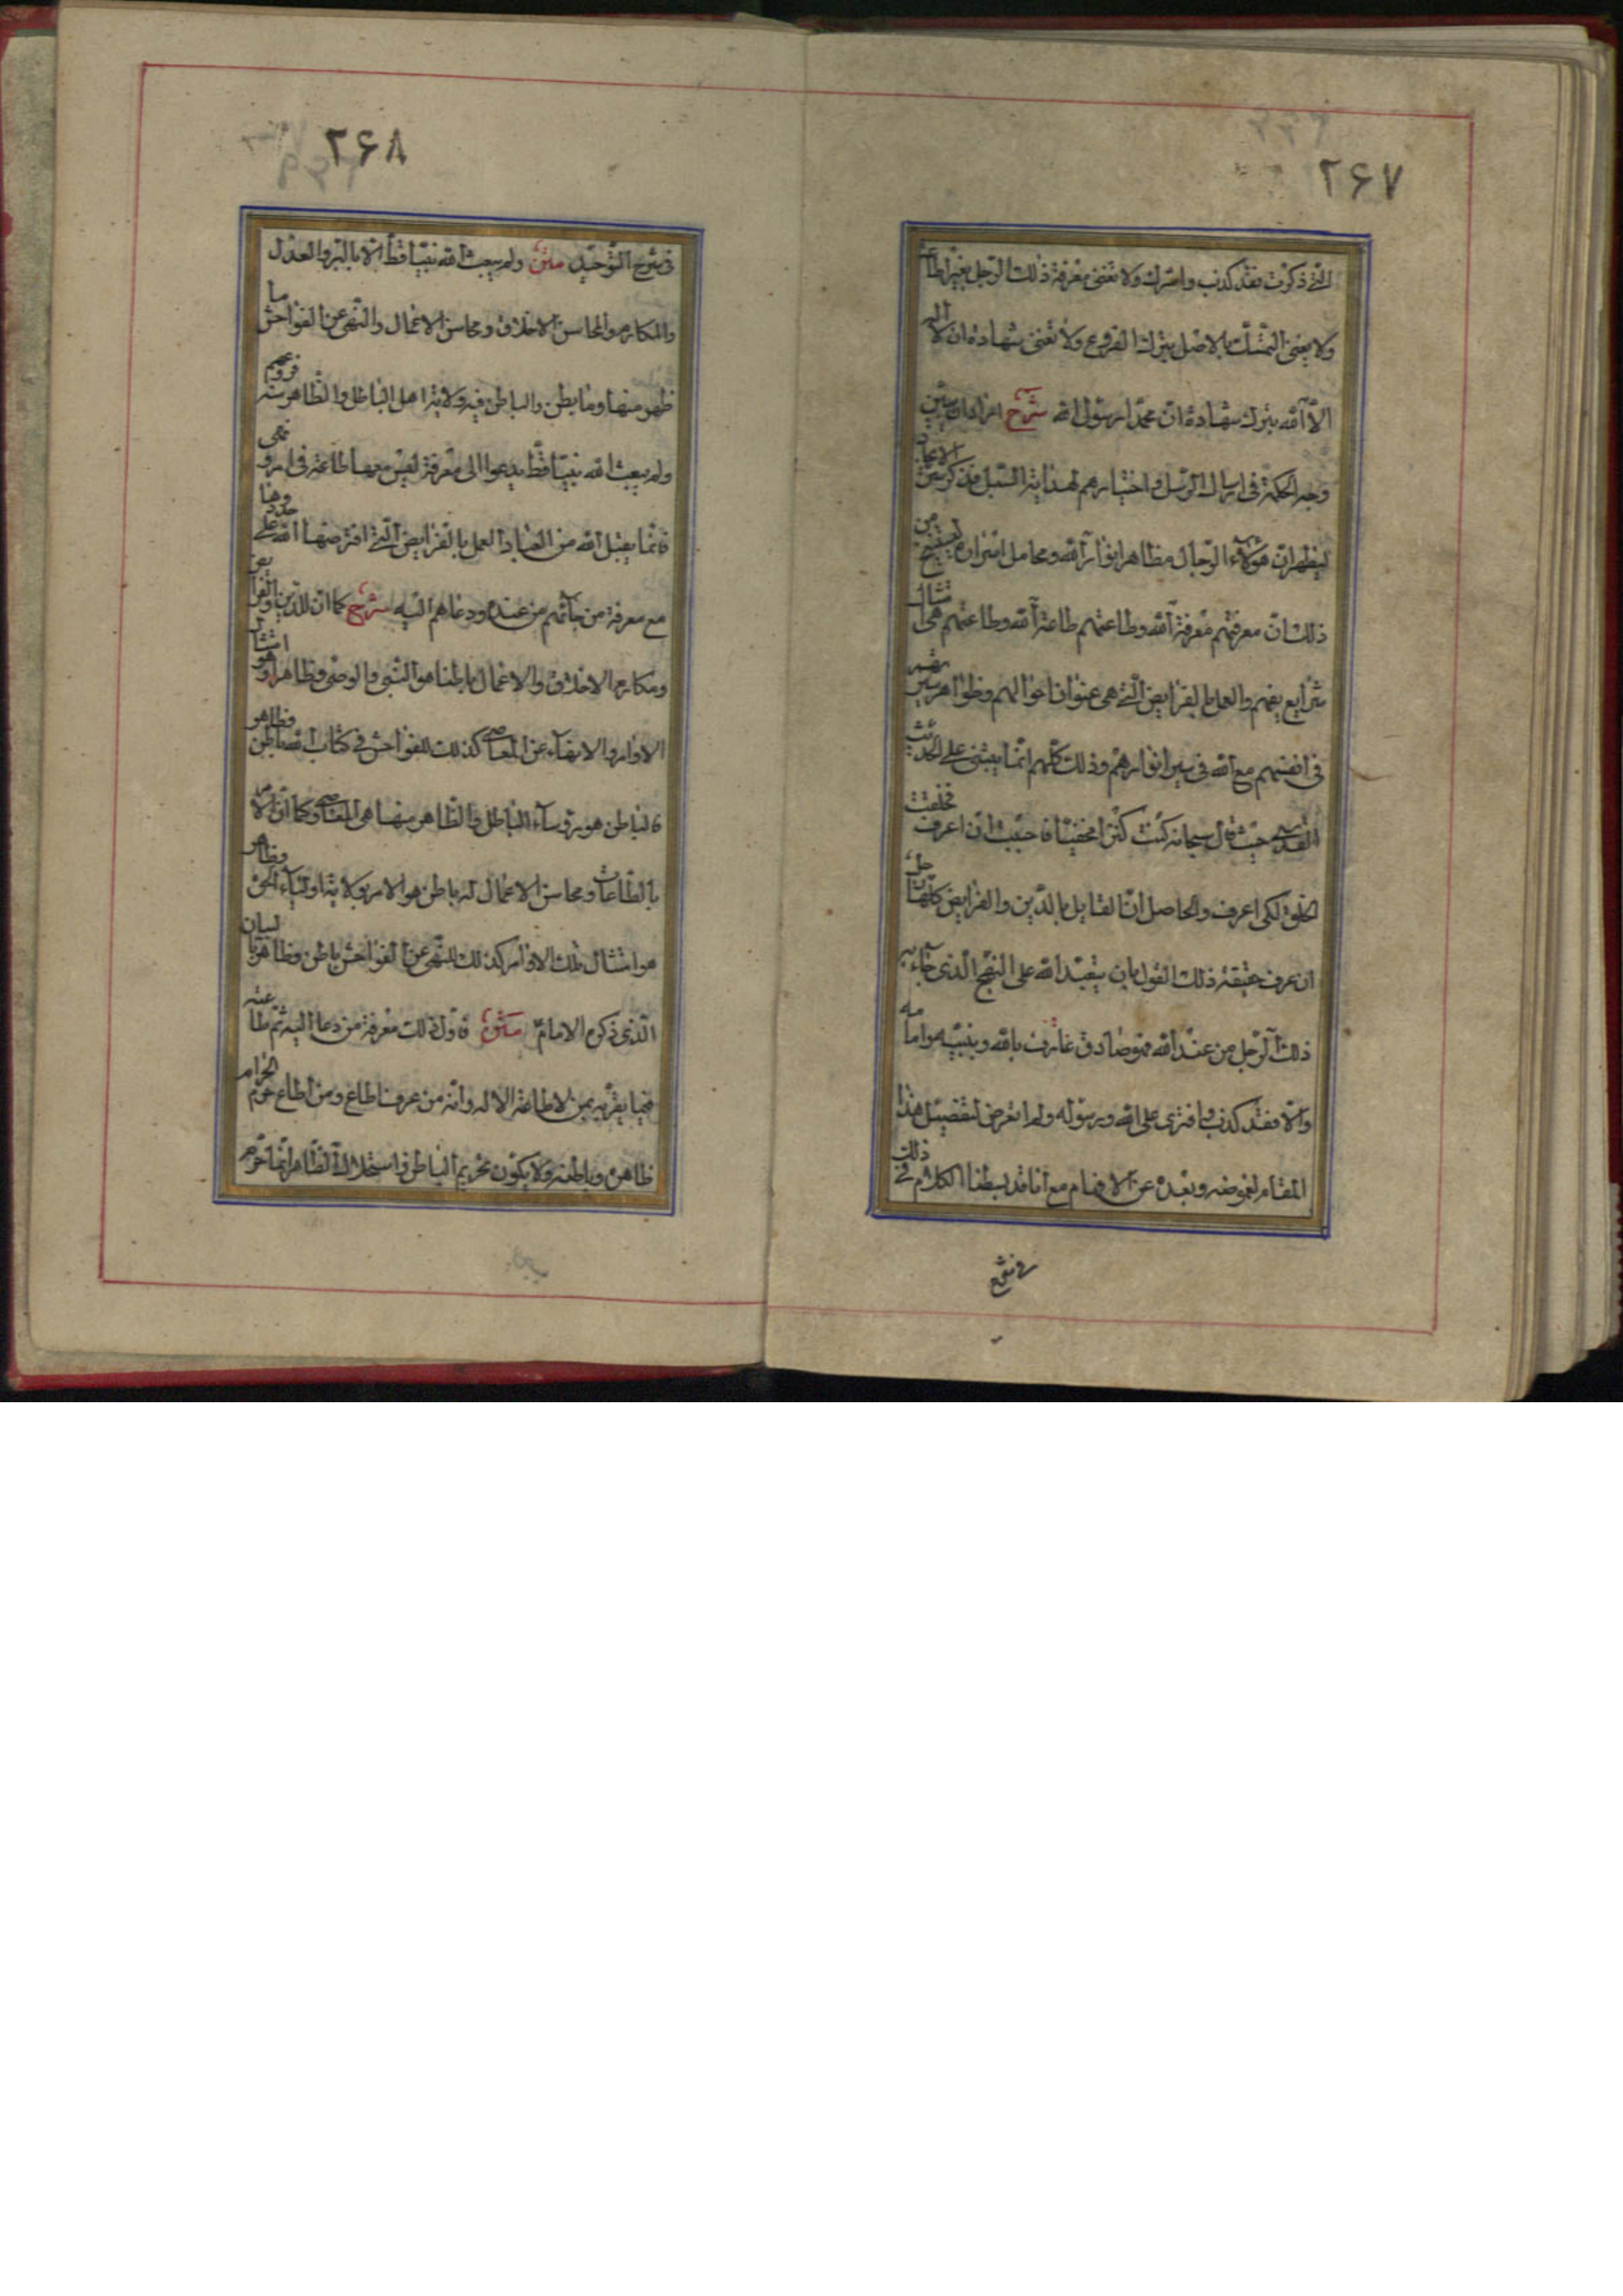 ۲۶۷
التی ذکرت فقد کذب واشرک ولا تغنی معرفة ذلک الرجل بغیر اطاعة
ولا یغنی التمسّک بالاصل بترک الفروع ولا تغنی شهادة ان لا اله
الّا الله بترک شهادة انّ محمّدا رسول الله شرح اراد ان یبیّن
وجه الحکمة فی ارسال الرّسل واختیارهم لهدایة السّبل من
لیظهر انّ هؤلاء الرّجال مظاهر انوار الله ومحامل اسراره
ذلک انّ معرفتهم معرفة الله وطاعتهم طاعة الله وطاعتهم هی امتثال
شرایعهم والعمل بالفرایض الّتی هی عنوان احوالهم وظواهر سیر
فی انفسهم مع الله فی سیر انوارهم وذلک کلّهم انّما یبتنی علی الحدیث
القدسی حیث قال سبحانه کنت کنزا مخفیّا فاحببت ان اعرف فخلقت
الخلق لکی اعرف والحاصل انّ القایل بالدّین والفرایض کلّها رجل
ان عرف حقیقة ذلک القول بان یتعبّد الله علی النهج الّذی جاء به
ذلک الرّجل من عند الله فهو صادق عارف بالله وبنبیّه وامامه
والّا فقد کذب وافتری علی الله ورسوله ولم اتعرض لتفصیل هذا
المقام لغموضه وبعده عن الافهام مع انا قد بسطنا الکلام فی ذلک
فی شرح
۲۶۸
فی شرح التّوحید متن ولم یبعث الله نبیّا قطّ الّا بالبرّ والعدل
والمکارم والمحاسن الاخلاق ومحاسن الاعمال والنّهی عن الفواحش ما
ظهر منها وما بطن والباطن فیه ولایة اهل الباطل والظّاهر منه فروعهم
ولم یبعث الله نبیّا قطّ یدعوا الی معرفة لیس معها طاعة فی امر ونهی
فانّما یقبل الله من العباد العمل بالفرایض الّتی افترضها الله علی حدودها
مع معرفة من جائهم من عنده ودعاهم الیه شرح کما انّ للدّین والفرایض
ومکارم الاخلاق والاعمال باطنا هو النّبی والوصیّ وظاهرا وهو امتثال
الاوامر والانتهاء عن المعاصی کذلک للفواحش فی کتاب الله باطن وظاهر
فالباطن هو رؤساء الباطل والظّاهر منها هی المعاصی وکما انّ الامر
بالطّاعات ومحاسن الاعمال له باطن هو الامر بولایة اولیاء الحقّ وظاهر
هو امتثال تلک الاوامر کذلک للنّهی عن الفواحش باطن وظاهر
الّذی ذکره الامام متن فاول ذلک معرفة من دعا الیه ثمّ طاعته
فیما یقرّبه بمن لا طاعة الا له وانّه من عرف اطاع ومن اطاع حرّم الحرام
ظاهره وباطنه ولا یکون تحریم الباطن واستحلال الظّاهر انّما حرّم